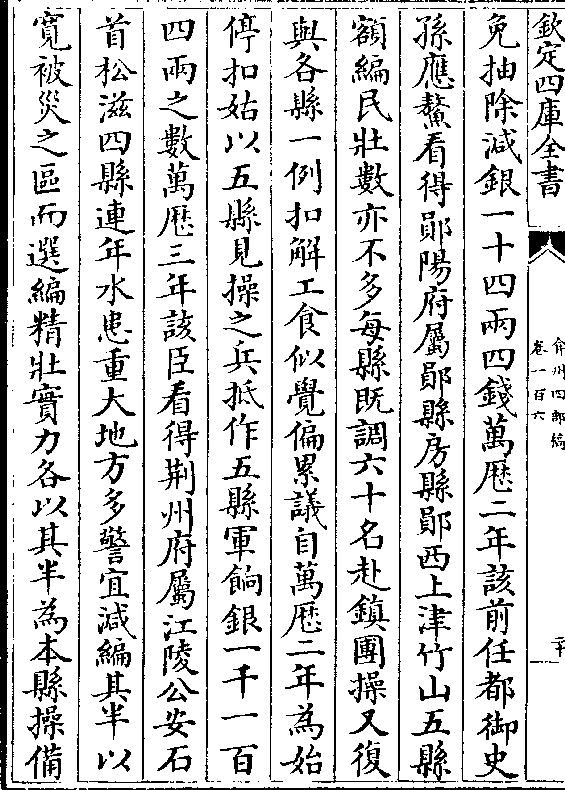 欽定四庫全書
弇州四部稿
卷一百六
二十
免抽除減銀一十四兩四錢萬厯二年該前任都御史
孫應鰲看得鄖陽府屬鄖縣房縣鄖西上津竹山五縣
額編民壯數亦不多每縣既調六十名赴鎮團操又復
與各縣一例扣解工食似覺偏累議自萬厯二年為始
停扣姑以五縣見操之兵抵作五縣軍餉銀一千一百
四兩之數萬厯三年該臣看得荆州府屬江陵公安石
首松滋四縣連年水患重大地方多警宜減編其半以
寛被災之區而選編精壯實力各以其半為本縣操備